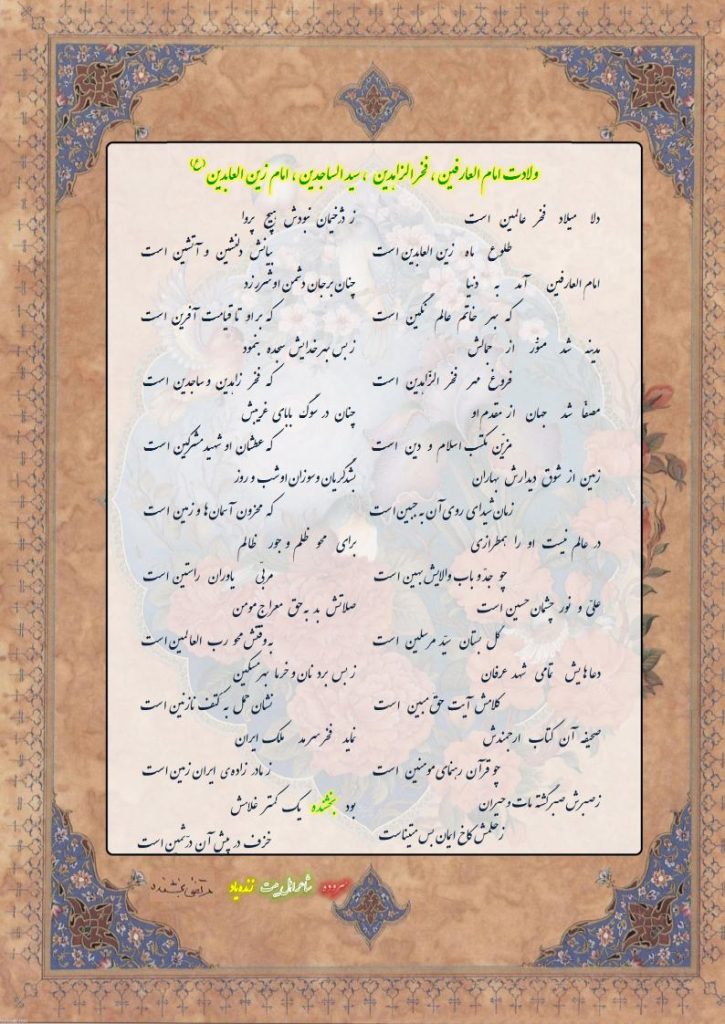 ولادت امام العارفین ، فخر الزاهدین ، سید الساجدین ، امام زین العابدین (ع)
دلا میلاد فخر عالمین است
طلوع ماه زین العابدین است
امام العارفین آمد به دنیا
که بهر خاتم عالم نگین است
مدینه شد منوّر از جمالش
فروغ مهر فخر الزّاهدین است
مصفّا شد جهان از مقدم او
مزیّن مکتب اسلام و دین است
زمین از شوق دیدارش بهاران
زمان شیدای روی آن مه جبین است
در عالم نیست او را همطرازی
چو جدّ و باب والایش بهین است
علیّ و نور چشمان حسین است
گل بستان سیّد مرسلین است
دعاهایش تمامی شهد عرفان
کلامش آیت حق مبین است
صحیفه آن کتاب ارجمندش
چو قرآن رهنمای مومنین است
ز صبرش صبر گشته مات و حیران
ز حلمش کاخ ایمان بس متینست
ز دژخیمان نبودش هیچ پروا
بیانش دلنشین و آتشین است
چنان بر جان دشمن او شرر زد
که بر او تا قیامت آفرین است
ز بس بهر خدایش سجده بنمود
که فخر زاهدین و ساجدین است
چنان در سوگ بابای غریبش
که عطشان او شهید مشرکین است
بشد گریان و سوزان او شب و روز
که محزون آسمان‌ها و زمین است
برای محو ظلم و جور ظالم
مربّی یاوران راستین است
صلاتش بد به حق معراج مومن
به وقتش محو رب العالمین است
ز بس برد نان و خرما بهر مسکین
نشان حمل به کتف نازنین است
نماید فخر سرمد ملک ایران
ز مادر زاده‌ی ایران زمین است
بود بخشنده یک کمتر غلامش
خزف در پیش آن درّ ثمین است
سروده شاعر اهل بیت زنده یاد